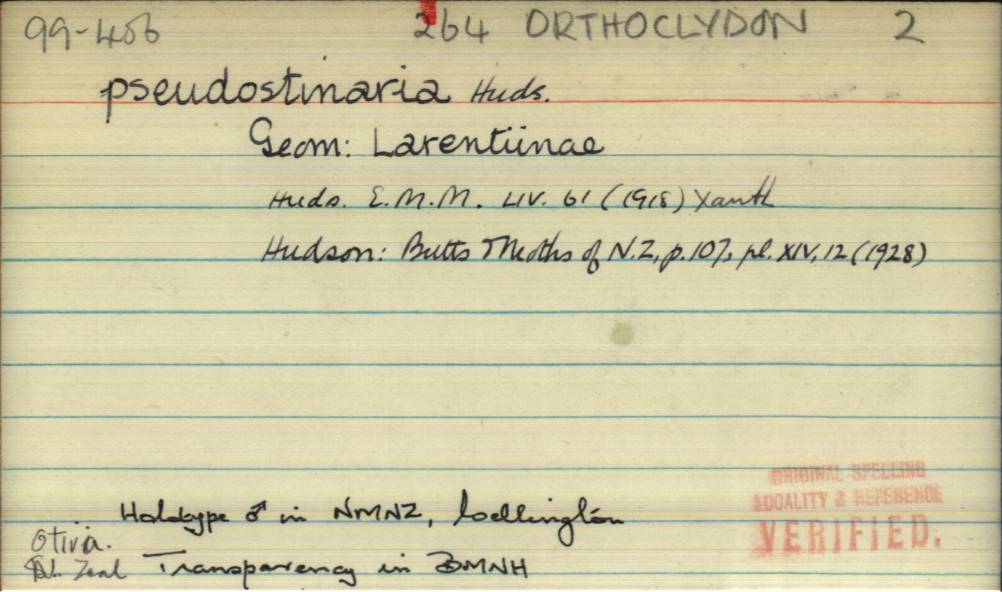 99-406 264 ORTHOCLYDON 2
pseudostinaria Huds.
Geom: Larentiinae
Huds. E.M.M. LIV. 61 (1918) Xanth
Hudson: Butts Moths of N.Z, p.107, pl. XIV, 12 (1928)
ORIGINAL SPELLING
LOCALITY & REFERENCE
VERIFIED.
Holotype ♂ in NMNZ, Wellington
Otira.
N. Zeal Transparency in BMNH